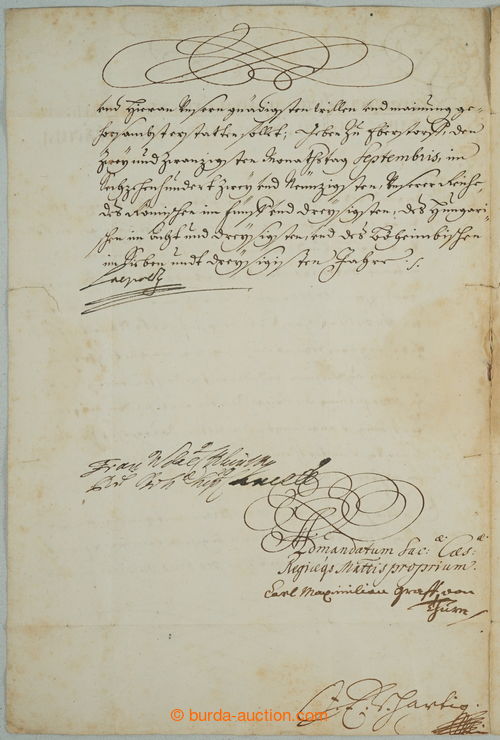 und hieran Unsern gnädigsten willen und mainung ge-
horsambst erstatten sollt; Geben zu Eberstorff, den
zwey und zwanzigsten Monathstag Septembris, im
Sechzehenhundert zwey und Neunzigsten, Unserer Reiche
des Römischen im fünff und dreysigsten, des Hungari-
schen im acht und dreysigsten, und des Böheimbischen
im Sieben und dreysigisten Jahre.
Leopold
Ad mandatum Sac: Cæs:æ
Regiæqs Mattis proprium.
Carl Maximilian graff von
Thurn
Hartig
© burda-auction.com